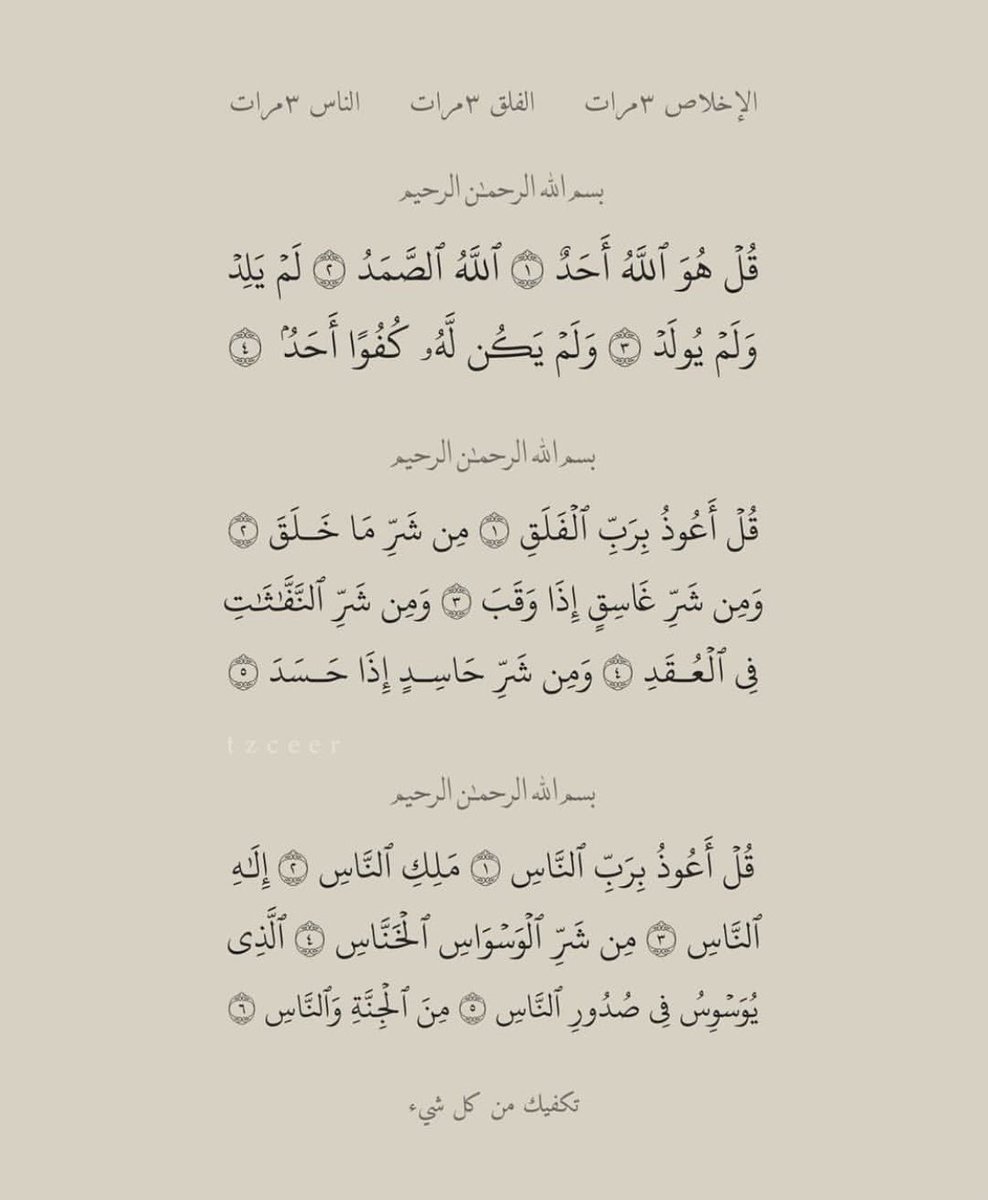 الإخلاص ٣مرات الفلق ٣مرات الناس ٣مرات
بسم الله الرحمـٰن الرحيم
قُلۡ هُوَ ٱللَّهُ أَحَدٌ ١ ٱللَّهُ ٱلصَّمَدُ ٢ لَمۡ يَلِدۡ
وَلَمۡ يُولَدۡ ٣ وَلَمۡ يَكُن لَّهُۥ كُفُوًا أَحَدُۢ ٤
بسم الله الرحمـٰن الرحيم
قُلۡ أَعُوذُ بِرَبِّ ٱلۡفَلَقِ ١ مِن شَرِّ مَا خَـلَقَ ٢
وَمِن شَرِّ غَاسِقٍ إِذَا وَقَبَ ٣ وَمِن شَرِّ ٱلنَّفَّـٰثَـٰتِ
فِى ٱلۡعُـقَدِ ٤ وَمِن شَرِّ حَاسِـدٍ إِذَا حَـسَدَ ٥
tzceer
بسم الله الرحمـٰن الرحيم
قُلۡ أَعُوذُ بِرَبِّ ٱلنَّاسِ ١ مَلِكِ ٱلنَّاسِ ٢ إِلَـٰهِ
ٱلنَّاسِ ٣ مِن شَرِّ ٱلۡوَسۡوَاسِ ٱلۡخَنَّاسِ ٤ ٱلَّذِى
يُوَسۡوِسُ فِى صُدُورِ ٱلنَّاسِ ٥ مِنَ ٱلۡجِنَّةِ وَٱلنَّاسِ ٦
تكفيك من كل شيء